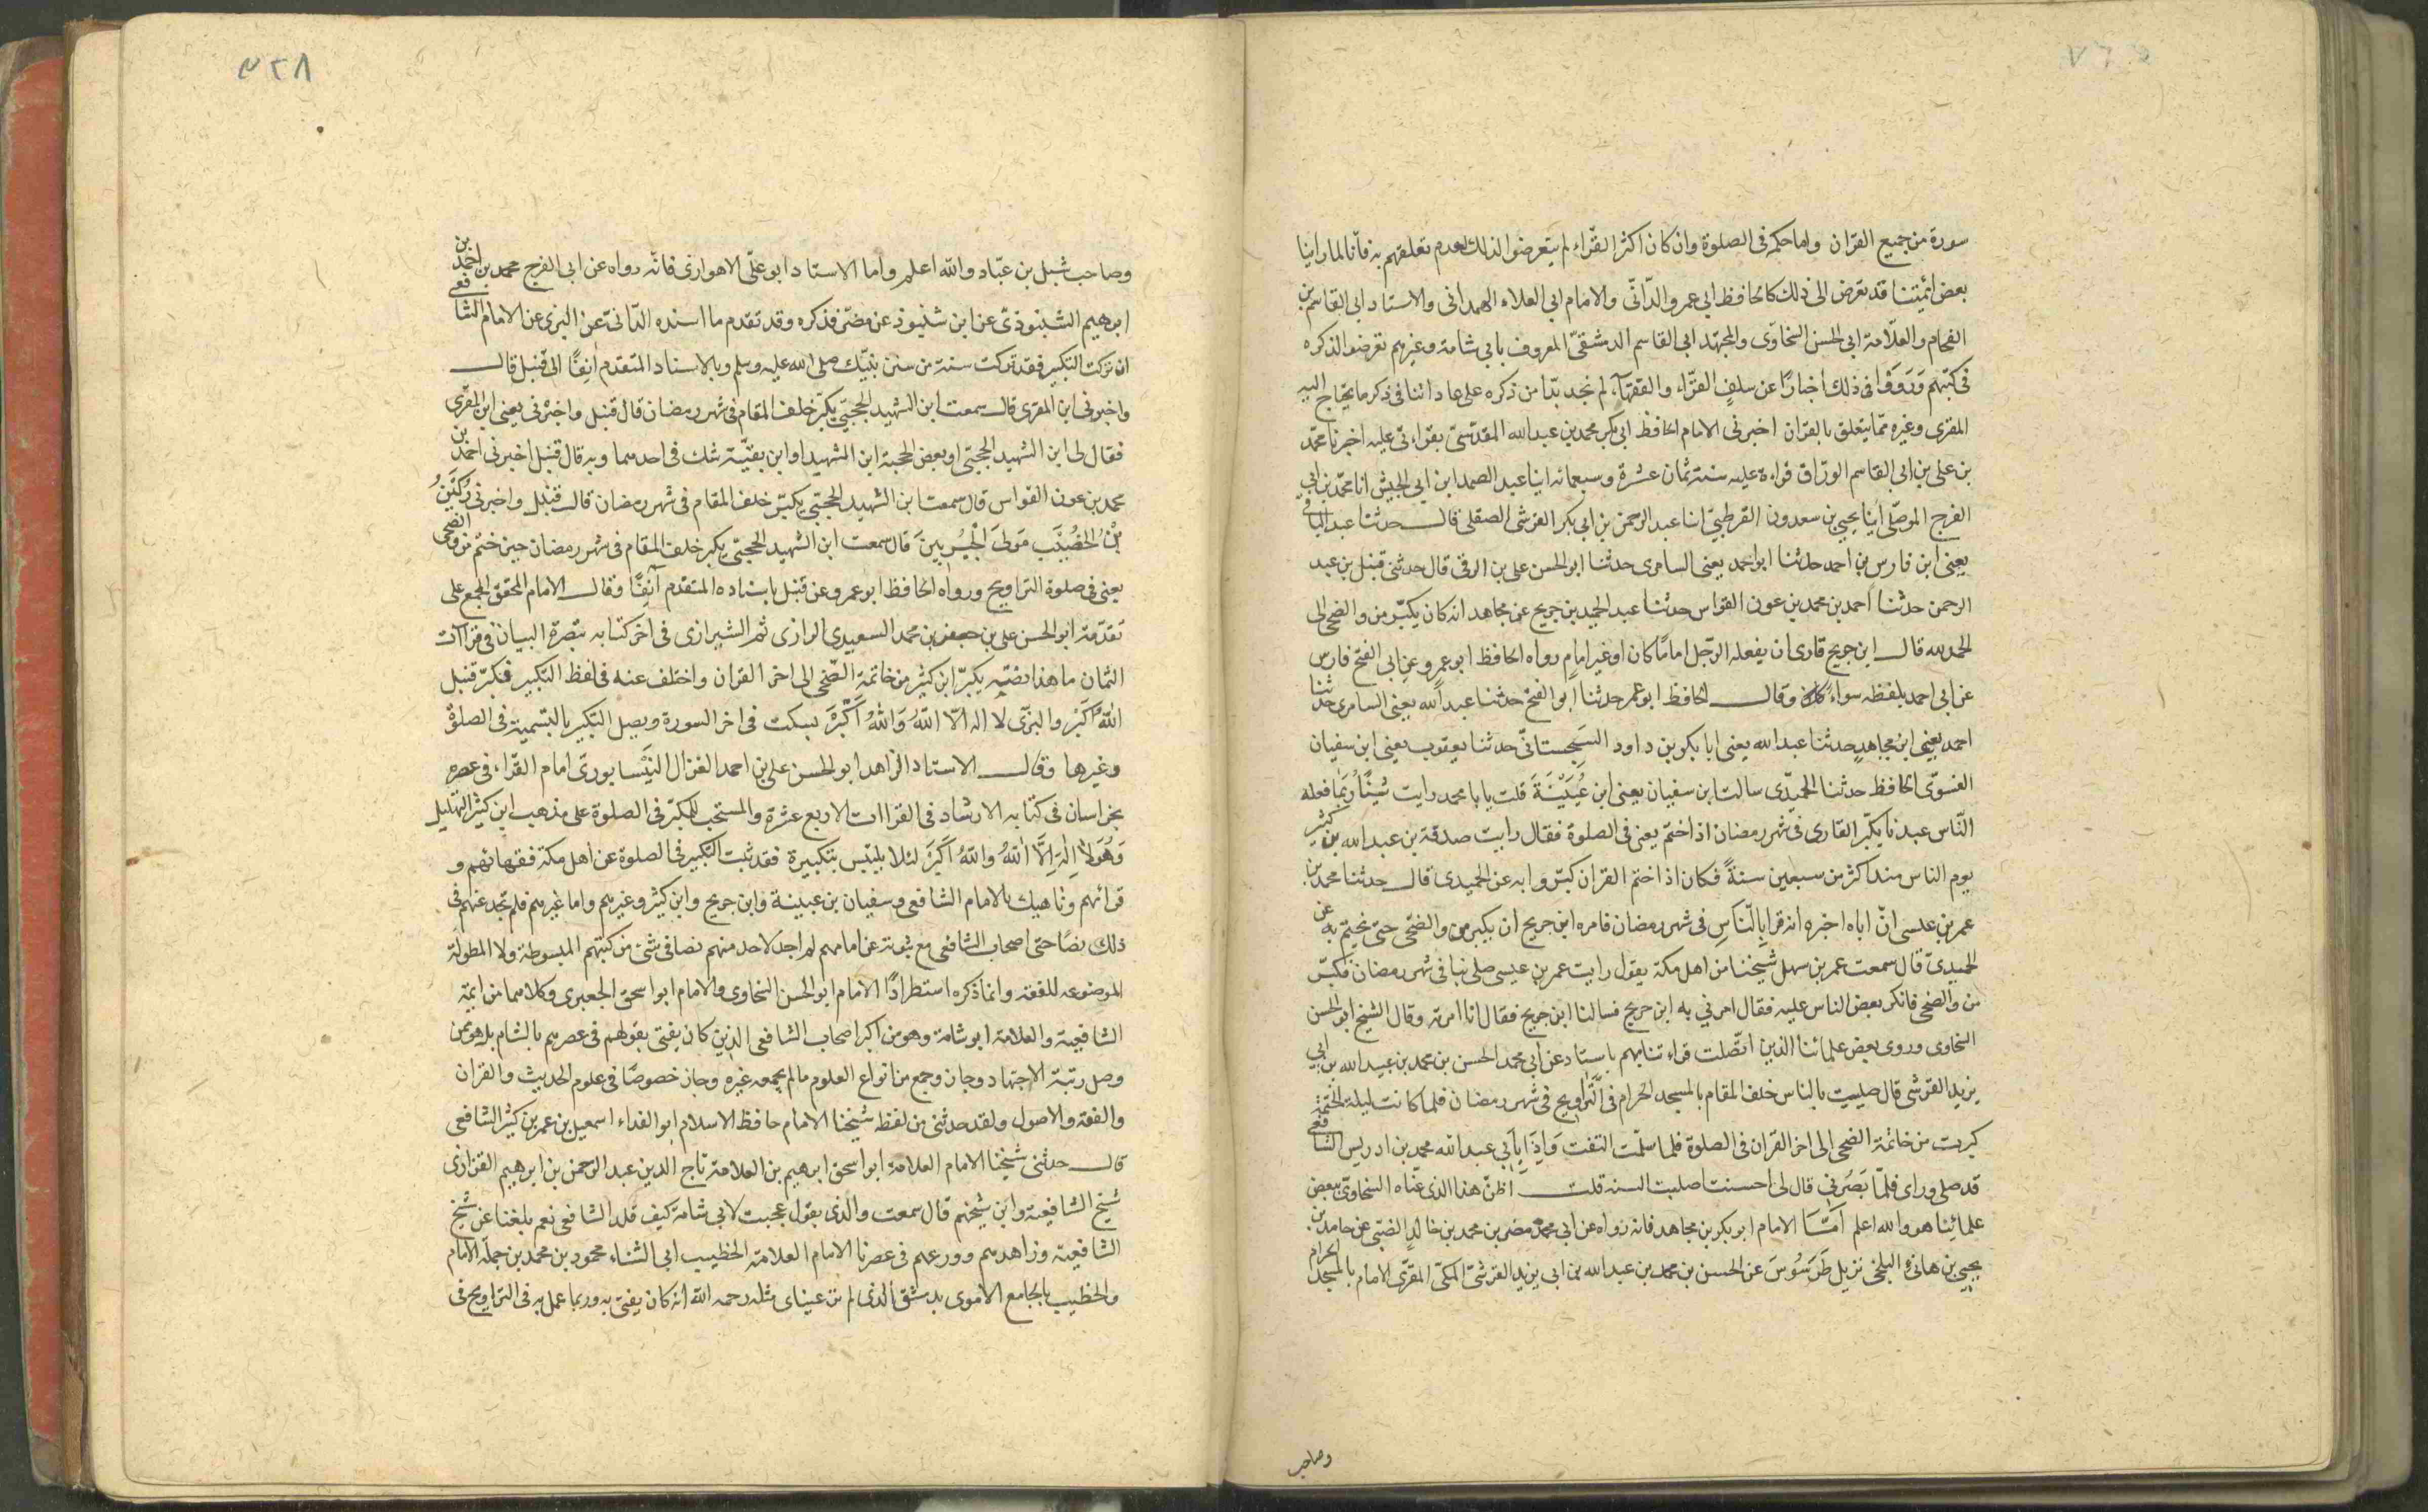 سورة من جميع القرآن واما حكمه فى الصلوة وان كان اكثر القرّاء لم يتعرضوا لذلك لعدم تعلقهم به فانا لما راينا
بعض ائمتنا قد تعرض الى ذلك كالحافظ ابى عمرو الدّانّى والامام ابى العلاء الهمدانى والاستاد ابى القاسم بن
الفحام والعلّامة ابى الحسن السخاوّى والمجتهد ابى القاسم الدمشقىّ المعروف بابى شامة وغيرهم تعرضوا لذكره
فى كتبهم وَرَوَوْا فى ذلك اخبارًا عن سلف القرّاء والفقهآء لم نجد بدّا من ذكره على عادتنا فى ذكر ما يحتاج اليه
المقرى وغيره ممّا يتعلق بالقران اخبرنى الامام الحافظ ابى بكر محمد بن عبد الله المقدسىّ بقراءتى عليه اخبرنا محمّد
بن على بن ابى القاسم الورّاق قراءة عليه سنة ثمان عشرة وسبعمائه ابنا عبد الصمد ابن ابى الجيش انا محمّد بن ابى
الفرج الموصّلى ابنا يحيى بن سعدون القرطبىّ انبا عبد الرحمن بن ابى بكر القرشى الصقلى قال حدثنا عبد الباقى
يعنى ابن فارس بن احمد حدثنا ابو احمد يعنى السامرى حدثنا ابو الحسن على بن الرقى قال حدثنى قنبل بن عبد
الرحمن حدثنا احمد بن محمد بن عون القواس حدثنا عبد الحميد بن جريج عن مجاهد انه كان يكبّر من والضحى الى
الحمد لله قال ابن جريج فارى ان يفعله الرّجل امامًا كان او غير امامٍ رواه الحافظ ابو عمرو عن ابى الفتح فارس
عن ابى احمد بلفظه سواءً وقال الحافظ ابو عمر حدثنا ابو الفتح حدثنا عبد الله يعنى السامرى حدثنا
احمد يعنى ابن مجاهدٍ حدثنا عبد الله يعنى ابا بكر بن داود السجستانّى حدثنا يعقوب يعنى ابن سفيان
الفسوّى الحافظ حدثنا الحميدّى سالت ابن سفيان يعنى ابن عُيَيْنَةَ قلت يابا محمد رايت شيئًا رُبّما فعله
النّاس عبدنا يكبّر القارى فى شهر رمضان اذا ختم يعنى فى الصلوة فقال رايت صدقة بن عبد الله بن كثير
يوم الناس منذ اكثر من سبعين سنةً فكان اذا ختم القران كبّر وابه عن الحميدى قال حدثنا محمد بن
عمر بن عيسى انّ اباه اخبره انه قرا بالنّاس فى شهر رمضان فامره ابن جريج ان يكبر من والضّحى حتى يختم به عن
الحميدىّ قال سمعت عمر بن سهل شيخنا من اهل مكة يقول رايت عمر بن عيسى صلى بنا فى شهر رمضان فكبّر
من والضحى فانكر بعض الناس عليه فقال امرنى به ابن جريج فسالنا ابن جريج فقال انا امرته وقال الشيخ ابو الحسن
السخاوى وروى بعض علمائنا الذين اتّصلت قراءتنا بهم باسناد عن ابى محمد الحسن بن محمد بن عبيد الله بن ابى
يزيد القرشى قال صليت بالناس خلف المقام بالمسجد الحرام فى التّراويح فى شهر رمضان فلما كانت ليلة الختمة
كبرت من خاتمة الضحى الى اخر القران فى الصلوة فلما سلّمت التفت وَاِذَا بِاَبى عبد الله محمد بن ادريس الشافعى
قد صلى وراى فلمّا بَصُرنى قال لى احسنت اصلبت السنه قلت اظنّ هذا الذى عنّاه السخاوىّ ببعض
علمائنا هو والله اعلم اَمَّا الامام ابو بكر بن مجاهد فانه رواه عن ابى محمد مضر بن محمد بن خالدٍ الضبّى عن حامد بن
يحيى بن هانىء البلخى نزيل طَرَسُوسَ عن الحسن بن محمد بن عبد الله بن ابى يزيد القرشىّ المكى المقرّى الامام بالمسجد الحرام
وصاحب
٢٢٨
وصاحب شبل بن عبّاد والله اعلم واما الاستاد ابو علّى الاهوازى فانّه رواه عن ابى الفرج محمد بن احمد بن
ابرهيم الشنبوذىّ عن ابن شنبوذ عن مضر فذكره وقد تقدم ما اسنده الدّانىّ عن البزى عن الامام الشافعى
ان تركت التكبير فقد تركت سنة من سنن نبيّك صلى الله عليه وسلم وبالاسناد المتقدم آنِفًا الى قنبل قال
واخبرنى ابن المقرى قال سمعت ابن الشهيد الحجبىّ يكبّر خلف المقام فى شهر رمضان قال قنبل واخبرنى يعنى ابن المقرّى
فقال لى ابن الشهيد الحجبّى او بعض الحجبة ابن الشهيد او ابن بقيّة شك فى احدهما وبه قال قنبل اخبرنى احمد بن
محمد بن عون القواس قال سمعت ابن الشهيد الحجبّى يكبّر خلف المقام فى شهر رمضان قال قنبل واخبرنى رُكَيْنُ
بْنُ الخُصَيْبِ مَولَى الْجُبَيْرِيينَ قال سمعت ابن الشهيد الحجبّى يكبر خلف المقام فى شهر رمضان حين ختم من والضحى
يعنى فى صلوة التراويح ورواه الحافظ ابو عمرو عن قنبل باسناده المتقدم آنِفًا وقال الامام المحقق المجمع على
تقدّمة ابو الحسن على بن جعفر بن محمد السعيدى الرازى ثم الشيرازى فى اخر كتابه تبصرة البيان فى قراآت
الثمان ما هذا نصّه يكبرّ ابن كثير من خاتمة الضّحى الى اخر القران واختلف عنه فى لفظ التكبير فكبرّ قنبل
اللهُ اَكبر والبزّى لا اله الا اللهُ وَاللهُ اَكْبَرَ بسكت فى اخر السورة ويصل التكبير بالتسمية فى الصلوة
وغيرها وقال الاستاد الزاهد ابو الحسن على بن احمد الغزال النّيسابورىّ امام القرّاء فى عصره
بخراسان فى كتابه الارشاد فى القراات الاربع عشرة والمستحب للمكبّر فى الصلوة على مذهب ابن كثير التهليل
وَهُوَ لَا اِلٰهَ اِلَّا اللهُ والله اَكْبَرُ لئلا يلتبّس بتكبيرة فقد ثبت التكبير فى الصلوة عن اهل مكة فقهائهم و
قرائهم وناهيك بالامام الشافعى وسفيان بن عيينة وابن جريج وابن كثير وغيرهم واما غيرهم فلم نجد عنهم فى
ذلك نصًا حتى اصحاب الشافعى مع ثبوته عن امامهم لم اجد لاحد منهم نصا فى شئ من كتبهم المبسوطة ولا المطولة
الموضوعه للفقه وانما ذكره استطرادًا الامام ابو الحسن السخاوى والامام ابو اسحق الجعبرى وكلاهما من ائمة
الشافعية والعلامة ابو شامة وهو من اكبر اصحاب الشافعى الذين كان يفتى بقولهم فى عصرهم بالشام بل هو ممن
وصل رتبة الاجتهاد وجاز وجمع من انواع العلوم مالم يجمعه غيره وجاز خصوصًا فى علوم الحديث والقران
والفقه والاصول ولقد حدثنى من لفظه شيخنا الامام حافظ الاسلام ابو الفداء اسمعيل بن عمر بن كثير الشافعى
قال حدثنى شيخنا الامام العلامة ابو اسحق ابرهيم بن العلامة تاج الدين عبد الرحمن بن ابرهيم الفزارى
شيخ الشافعية وابن شيخهم قال سمعت والدى يقول عجبت لابى شامة كيف قلد الشافعى نعم بلغنا عن شيخ
الشافعية وزاهدهم وورعهم فى عصرنا الامام العلامة الخطيب ابى الثناء محمود بن محمد بن جملة الامام
والخطيب بالجامع الاموى بدمشق الذى لم تر عيناى مثله رحمه الله انه كان يفتى به وربما عمل به فى التراويح فى